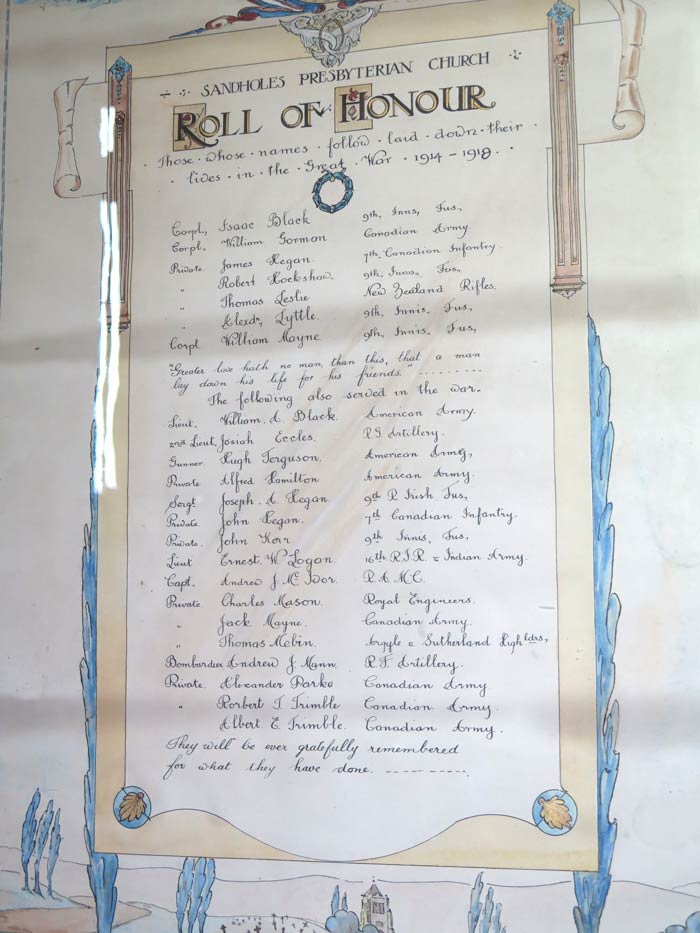 SANDHOLES PRESBYTERIAN CHURCH
ROLL OF HONOUR
Those whose names follow laid down their
lives in the Great War 1914 - 1918.
Corpl, Isaac Black 9th, Inns, Fus,
Corpl, William Gorman Canadian Army.
Private James Hegan. 7th, Canadian Infantry.
" Robert Hockshaw. 9th, Innis, Fus,
" Thomas Leslie New Zealand Rifles.
" Alexdr, Lyttle. 9th, Innis, Fus,
Corpl William Mayne 9th, Innis, Fus,
"Greater love hath no man, than this, that a man
lay down his life for his friends." .........
The following also served in the war.
Lieut. William. A. Black. American Army.
2nd Lieut, Josiah Eccles. Artillery.
Gunner. Hugh Ferguson. American Army,
Private Alfred Hamilton American Army.
Sergt Joseph. A. Hegan 9th R Irish Fus,
Private John Hegan. 7th Canadian Infantry.
Private. John Kerr. 9th Innis, Fus,
Lieut Ernest. W. Logan. 16th R.I.R. & Indian Army.
Capt. Andrew J. Mc Ivor. R.A.M.C.
Private Charles Mason. Royal Engineers.
" Jack Mayne. Canadian Army.
" Thomas Mebin. Argyle & Sutherland Highldrs,
Bombardier Andrew J. Mann. Artillery.
Private. Alexander Parke Canadian Army
" Rorbert T. Trimble Canadian Army.
Albert E. Trimble. Canadian Army.
They will be ever gratefully remembered
for what they have done. ----- -----.